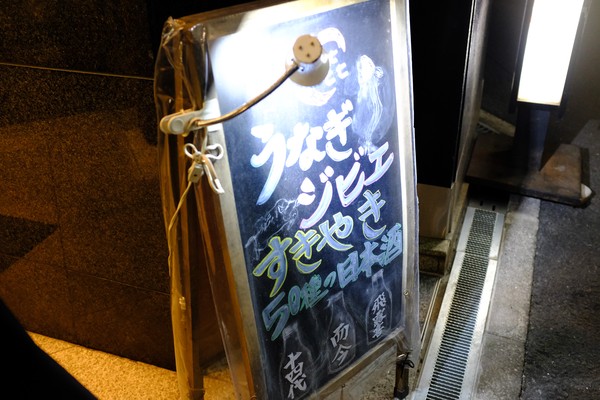 うなぎ
ジビエ
すきやき
50種の日本酒
十四代
而今
飛露喜